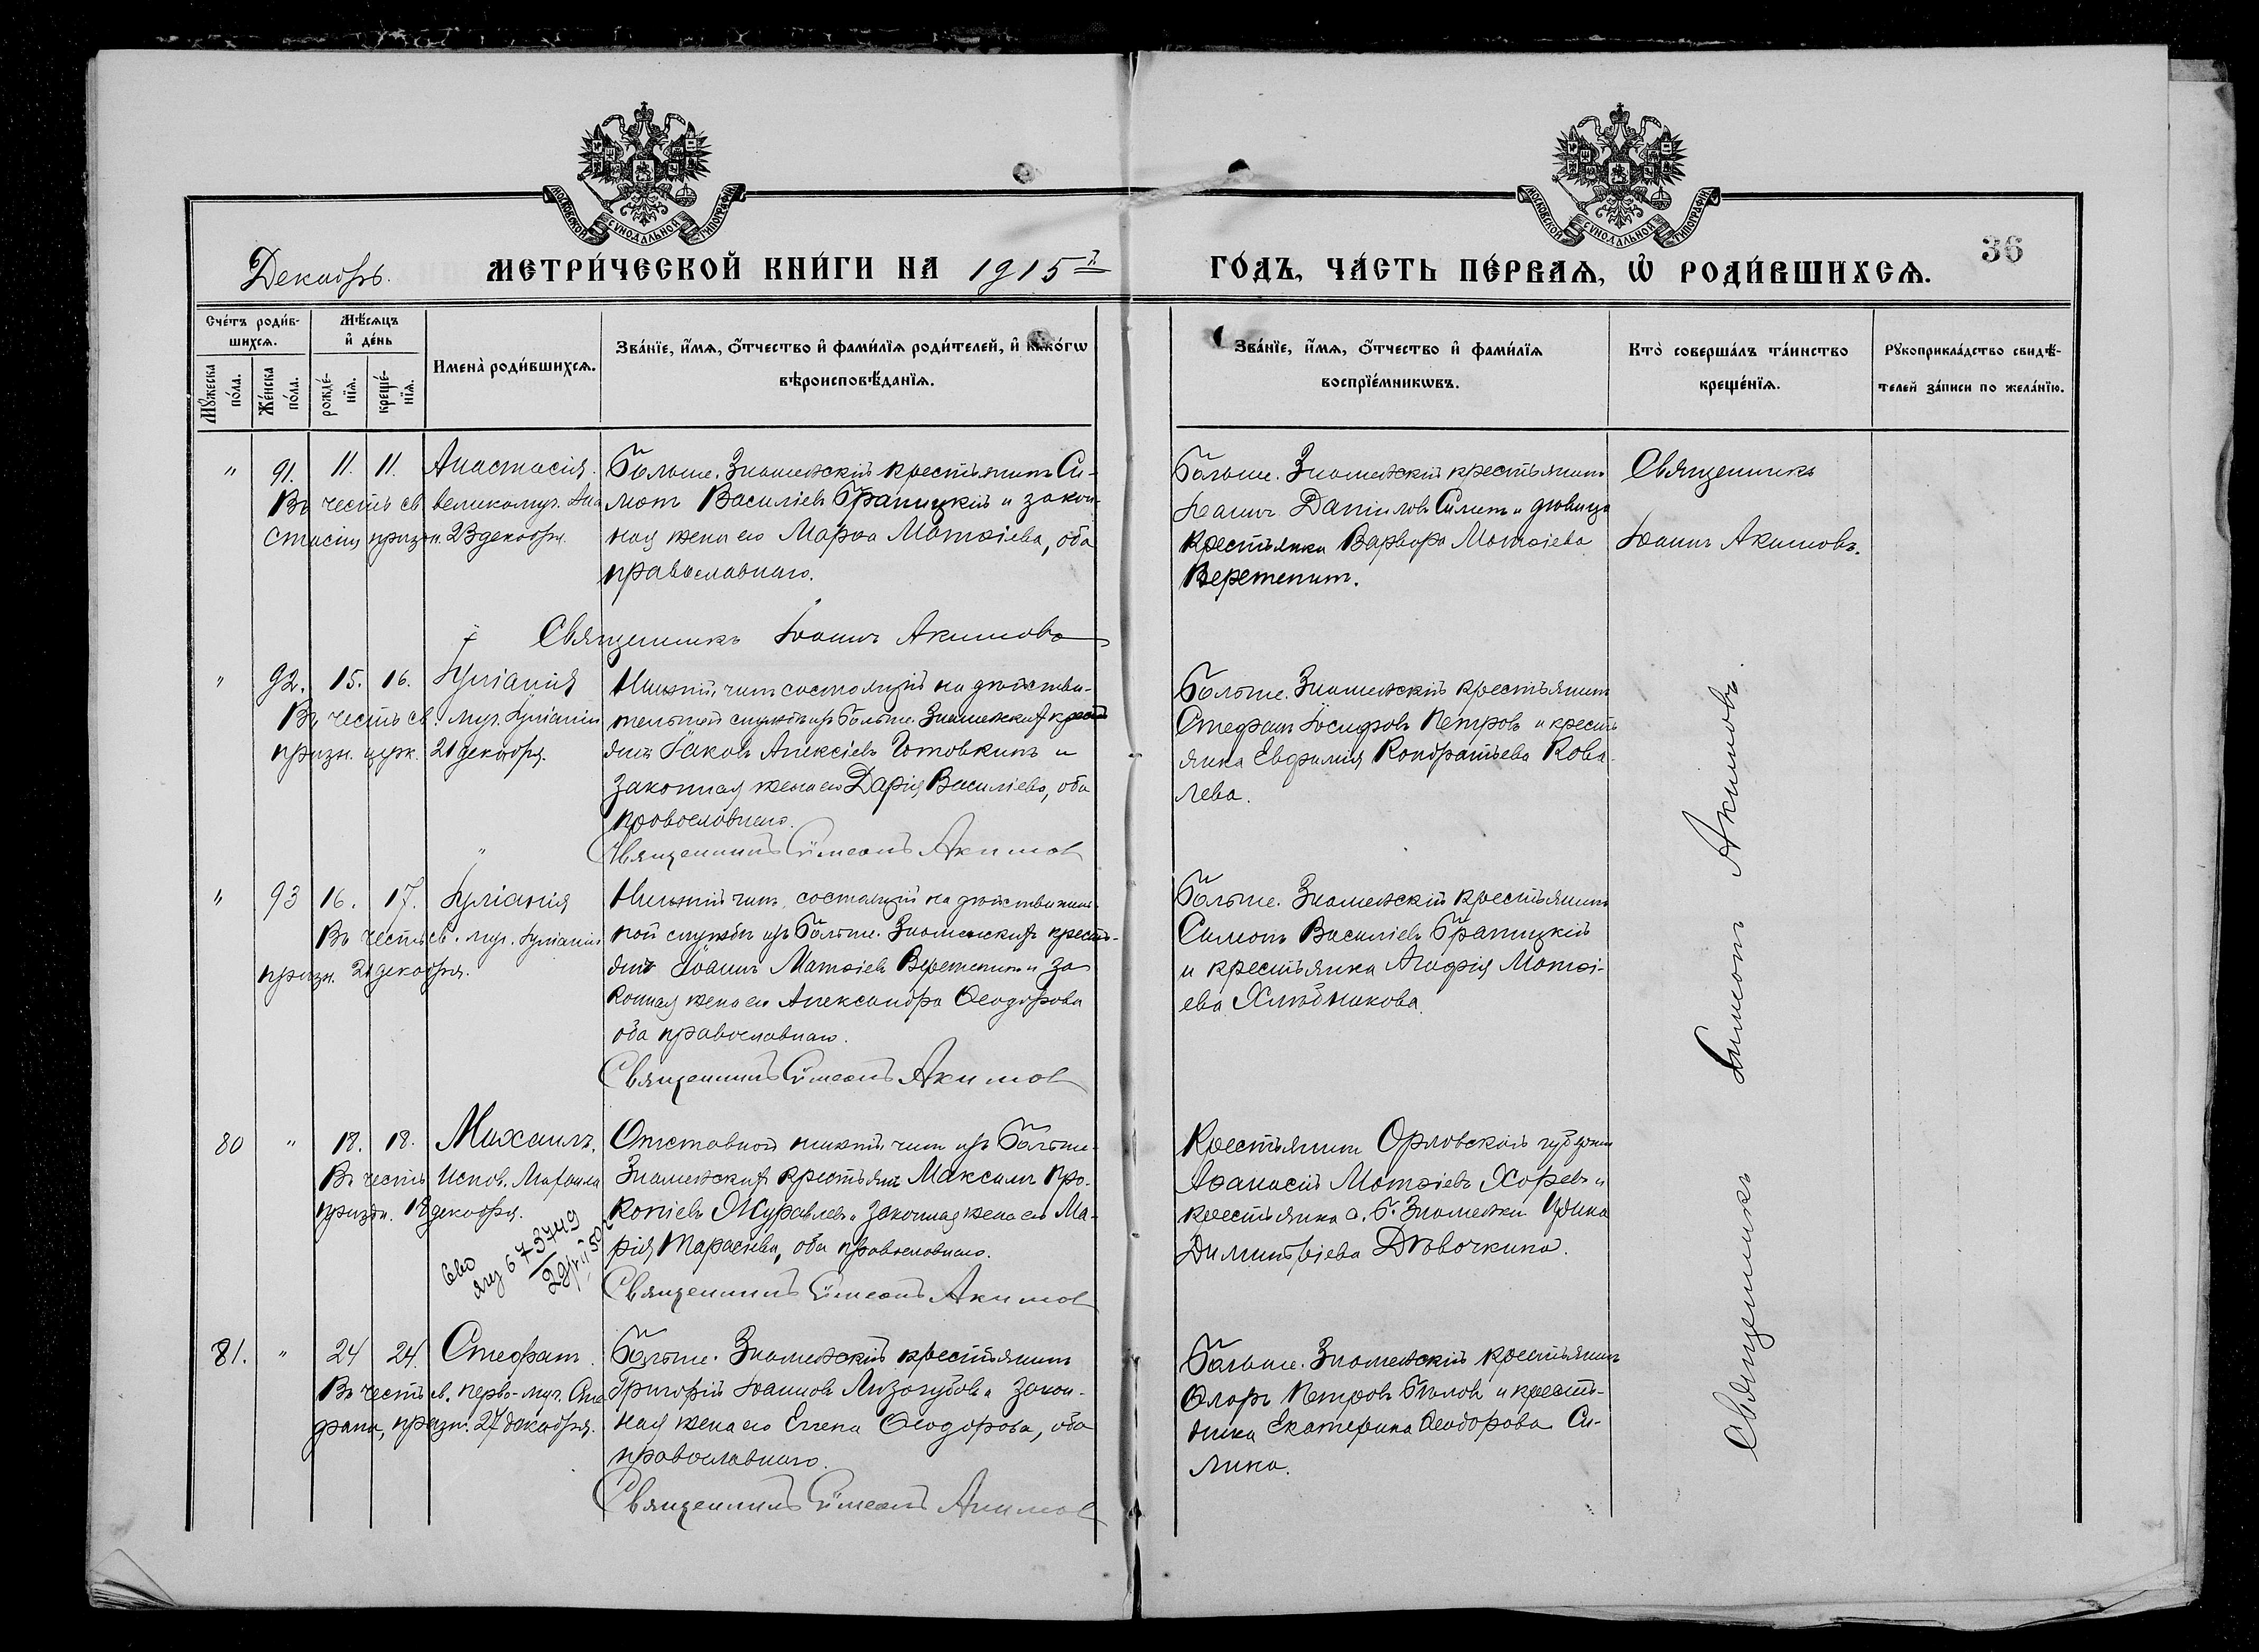 МОСКОВСКОЙ СѴНОДАЛЬНОЙ ТИПОГРАФІИ
МОСКОВСКОЙ СѴНОДАЛЬНОЙ ТИПОГРАФІИ
36
Декабрь.
МЕТРИ́ЧЕСКОЙ КНИ́ГИ НА 1915й
ГО́ДЪ, ЧА́СТЬ ПЕ́РВАѦ, Ѽ РОДИ́ВШИХСѦ.
Сче́тъ роди́в-
шихсѧ.
Мѣ́сѧцъ
и҆ де́нь
Мꙋ́жеска по́ла.
Же́нска по́ла.
рожде́-
нїѧ.
креще́-
нїѧ.
Имена̀ роди́вшихсѧ.
Зва́нїе, и҆́мѧ, ѻ҆́тчество и҆ фами́лїѧ роди́телей, и҆ како́гѡ
вѣроисповѣ́данїѧ.
Зва́нїе, и҆́мѧ, ѻ҆́тчество и҆ фами́лїѧ
воспрїе́мникѡвъ.
Кто̀ соверша́лъ та́инство
креще́нїѧ.
Рꙋкоприкла́дство свидѣ́-
телей за́писи по жела́нїю.
" 91. 11. 11. Анастасія.
Въ честь св великомуч. Ана
стасіи празн. 23 декабря.
Больше-Знаменскій крестьянинъ Си-
монъ Василіевъ Браницкій и закон-
ная жена его Марѳа Матѳіева, оба
православнаго.
Священникъ Іоаннъ Акимовъ
Больше-Знаменскій крестьянинъ
Іоаннъ Даніиловъ Силинъ и дѣвица
крестьянка Варвара Матѳіева
Веретенинъ.
Священникъ
Іоаннъ Акимовъ.
" 92. 15. 16. Іуліанія
Въ честь св. муч. Іуліаніи
празн. церк. 21 декабря.
Нижній чинъ состоящій на дѣйстви-
тельной службѣ изъ Больше-Знаменскихъ кресть
янъ Іаковъ Алексіевъ Готовкинъ и
законная жена его Дарія Василіева, оба
православнаго.
Священникъ Сѵмеонъ Акимов
Больше-Знаменскій крестьянинъ
Стефанъ Іосифовъ Петровъ и кресть
янка Евфимія Кондратьева Кова-
лева.
" 93 16. 17. Іуліанія
Въ честь св. муч. Іуліаніи
празн. 21 декабря.
Нижній чинъ, состоящій на дѣйствитель-
ной службѣ изъ Больше-Знаменскихъ кресть-
янъ Іоаннъ Матѳіевъ Веретенинъ и за
конная жена его Александра Ѳеодорова
оба православнаго.
Священникъ Сѵмеонъ Акимов
Больше-Знаменскій крестьянинъ
Симонъ Василіевъ Браницкій
и крестьянка Агафія Матѳі-
ева Хлѣбникова.
80 " 18. 18. Михаилъ.
Въ честь Испов. Михаила
праздн. 18 декабря.
Отставной нижній чинъ изъ Больше-
Знаменскихъ крестьянъ Максимъ Про-
копіевъ Журавлевъ и законная жена его Ма-
рія Тарасіева, оба православнаго.
Священникъ Сѵмеонъ Акимов
Крестьянинъ Орловской губерніи
Аѳанасій Матѳіевъ Хоревъ и
крестьянка с. Б. Знаменки Ирина
Димитріева Дѣвочкина.
81. " 24 24. Стефанъ.
Въ честь св. перво-муч. Сте
фана, празн. 27 декабря.
Больше-Знаменскій крестьянинъ
Григорій Іоанновъ Лизогубовъ и закон-
ная жена его Елена Ѳеодорова, оба
православнаго.
Священникъ Сѵмеонъ Акимов
Больше-Знаменскій крестьянинъ
Флоръ Петровъ Бѣловъ и кресть-
янка Екатерина Ѳеодорова Си-
лина.
Священникъ Симеонъ Акимовъ